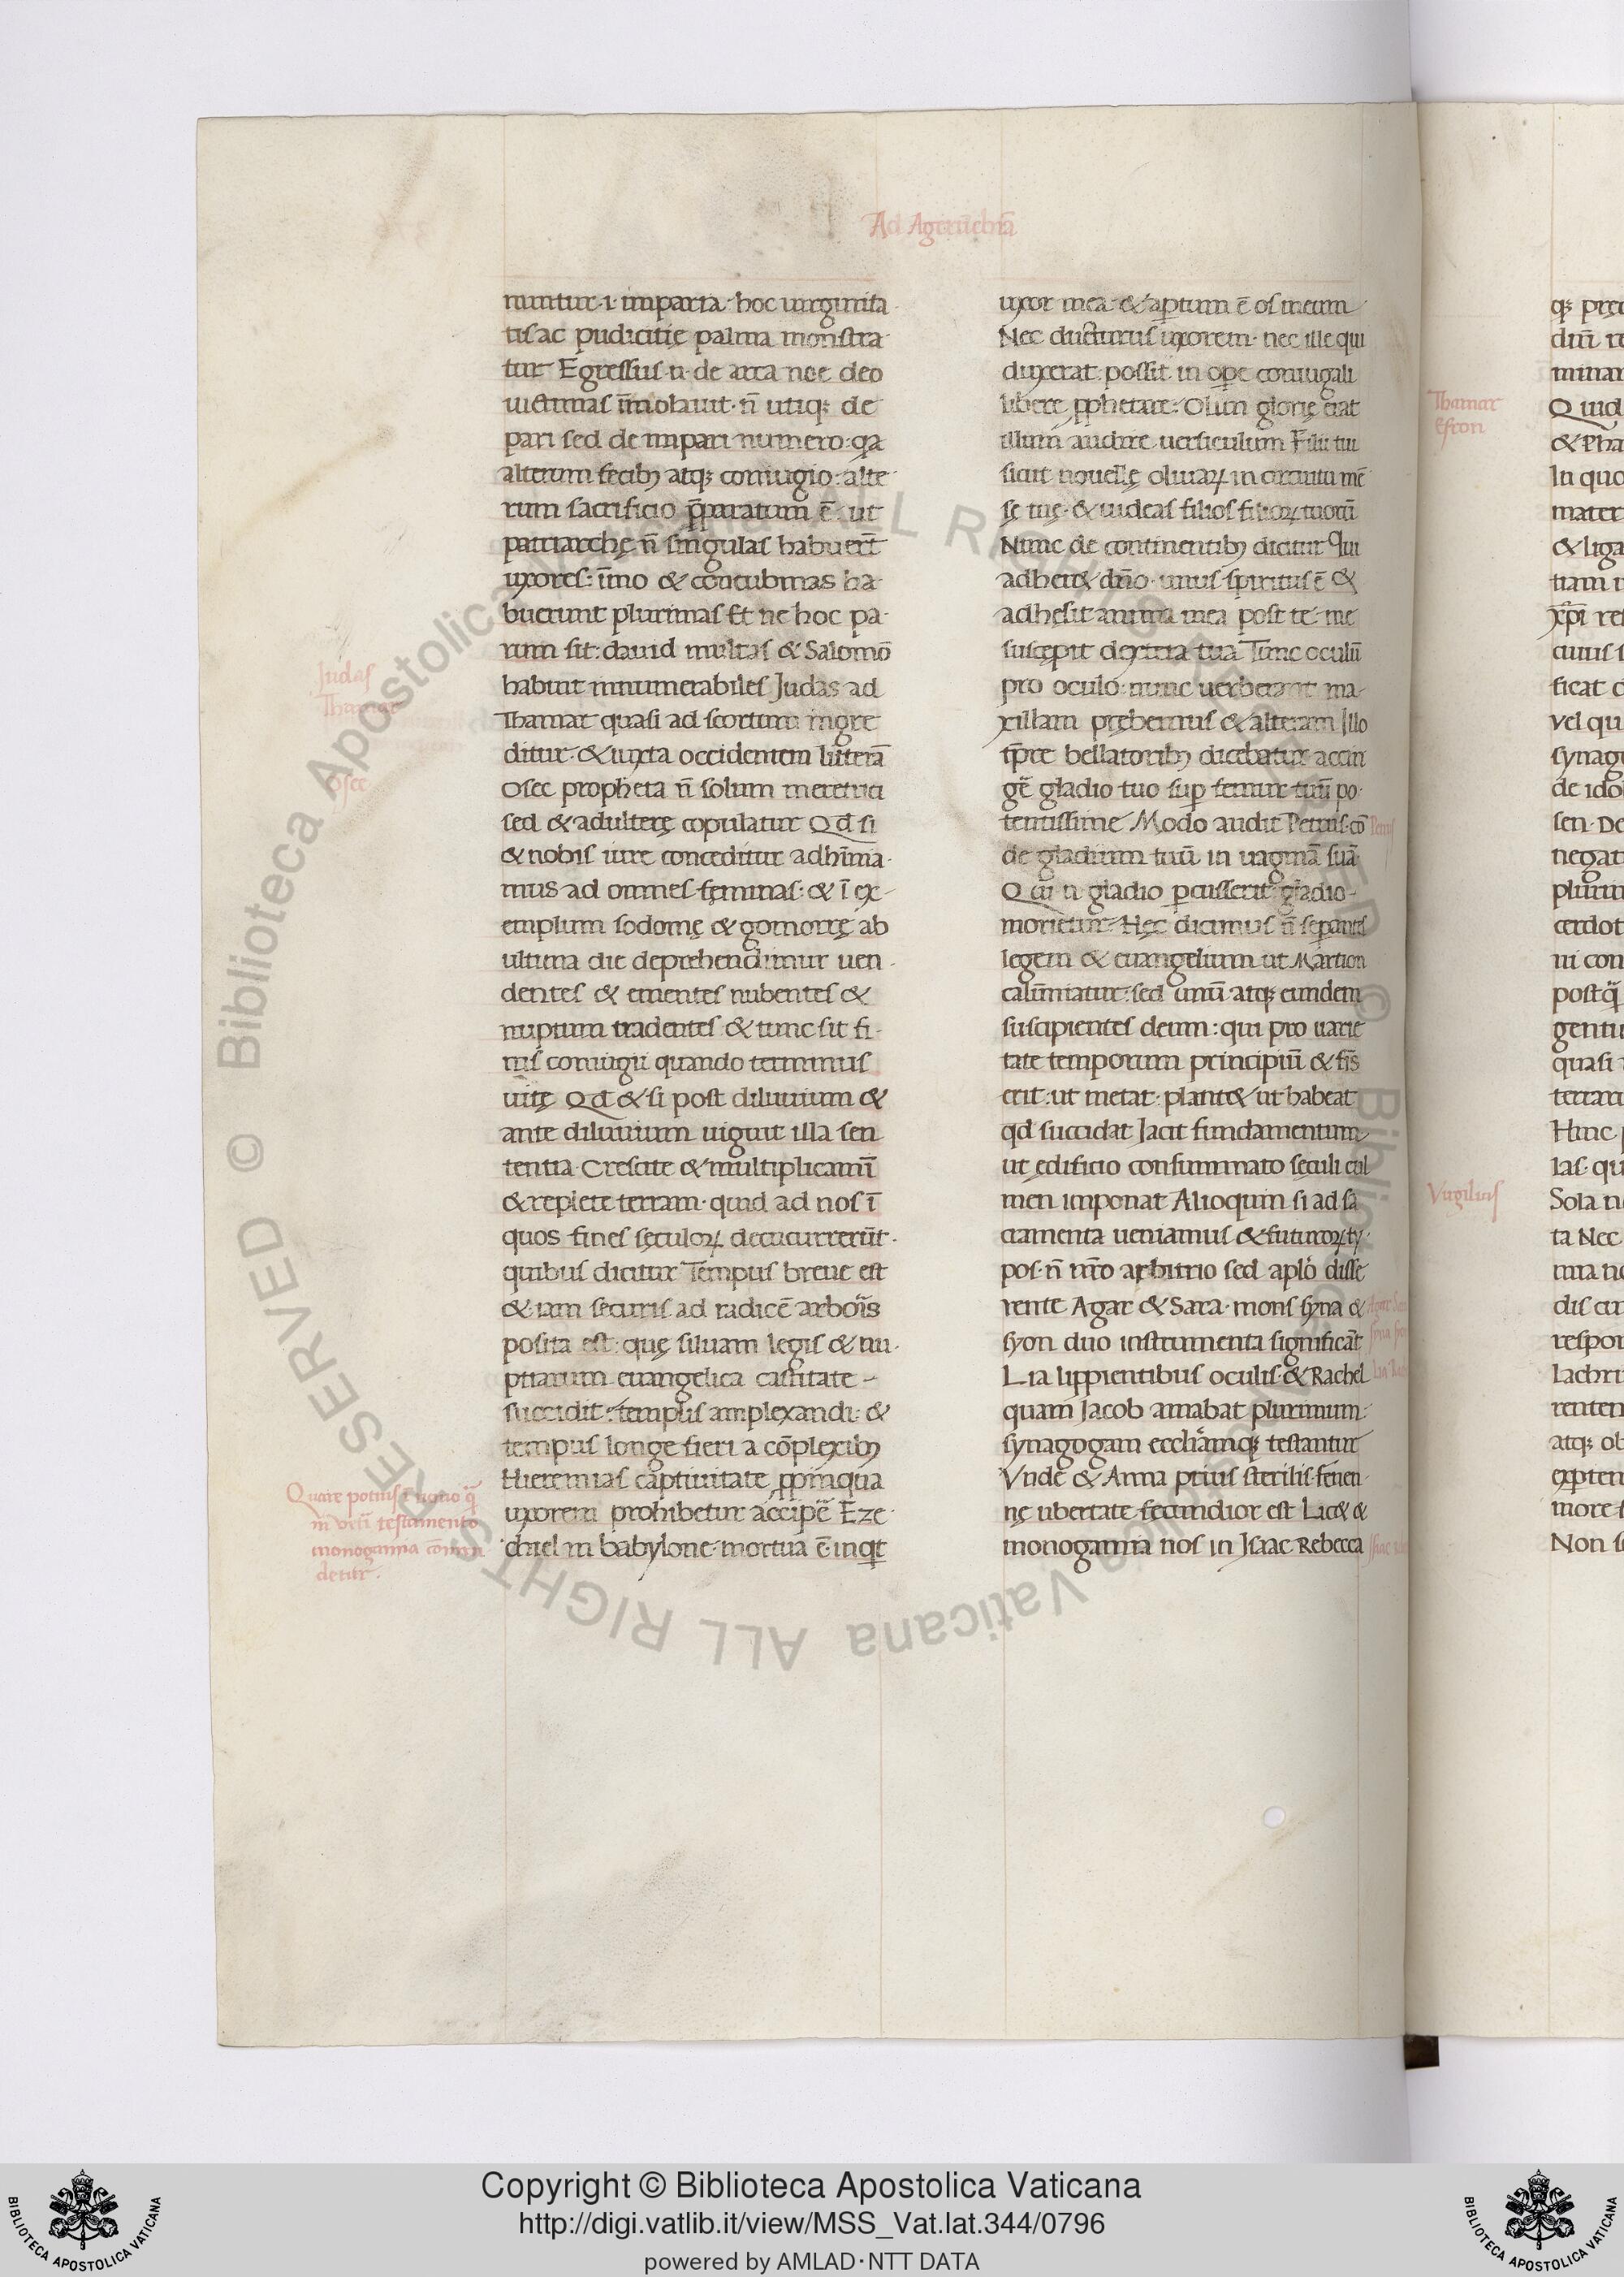 Ad Agerucbiā
nuntur·i·imparia·hoc uirginita
tis ac pudicitię palma monstra
tur Egressus·n·de arca noe deo
uictimas īmolauit·n̄ utiqꝫ de
pari sed de impari numero:qa
alterum fetibꝫ atqꝫ coniugio:alte
rum sacrificio p̄paratum ē·ut
patriarchę n̄ singulas habuerīt
uxores:īmo & concubinas ha
buerunt plurimas Et ne hoc pa
rum sit:dauid multas & Salomō
habuit innumerabiles Judas ad
Thamar quasi ad scortum ingre
ditur·& iuxta occidentem litterā
Osee propheta n̄ solum meretrici
sed & adulterę copulatur Qd si
& nobis iure conceditur adhīnia
mus ad omnes feminas:& ī ex
emplum sodomę & gomorrę ab
ultima die deprehendimur uen
dentes & ementes nubentes &
nuptum tradentes & tunc sit fi
nis coniugii quando terminus
uitę Qd & si post diluuium &
ante diluuium uiguit illa sen
tentia·Crescite & multiplicaminī
& replete terram·quid ad nos ī
quos fines sęculoꝝ decucurrerūt·
quibus dicitur Tempus breue est
& iam securis ad radicē arboris
posita est:quę siluam legis & nu
ptiarum euangelica castitate
succidit:templis amplexandi·&
tempus longe fieri a cōplexibꝫ
Hieremias captiuitate ꝓpinqua
uxorem prohibetur accipe Eze
chiel in babylone·mortua ē inqt
uxor mea·& aptum ē os meum
Nec ducturus uxorem·nec ille qui
duxerat possit in ope coniugali
libere ꝓphetare:Olim glorię erat
illum audire uersiculum Filii tui
sicut nouellę oliuaꝝ in circuitu mē
sę tuę·& uideas filios filioꝝ tuorū
Nunc de continentibꝫ dicitur Qui
adheret dn̄o·unus spiritus ē &
adhesit anima mea post te·me
suscepit dextera tua Tunc oculū
pro oculo:nunc uerberant ma
xillam prębemus & alteram Illo
tp̄re bellatoribꝫ dicebatur accin
gē gladio tuo sup femur tuū po
tentissime Modo audit Petrus·cō
de gladium tuū in uaginā suā
Qui n gladio pcusserit gladio
morietur·Hęc dicimus n̄ separantes
legem & euangelium ut Martion
calūniatur:sed unū atqꝫ eundem
suscipientes deum:qui pro uarie
tate temporum principiū & fīs
erit:ut metat·plantet ut habeat
qd succidat Jacit fundamentum
ut ędificio consummato sęculi cul
men imponat Alioquin si ad sa
cramenta ueniamus & futuroꝝ ty
pos·n̄ nr̄o arbitrio sed aplo disse
rente Agar & Sara·mons syna &
syon duo instrumenta significāt
Lia lippientibus oculis·& Rachel
quam Jacob amabat plurimum
synagogam eccl̄iamqꝫ testantur
Vnde & Anna prius sterilis·fenen
nę ubertate fecundior est Licet &
monogamia nos in Isaac Rebecca
Judas
Thamar
Osee
Quare potius ī nouo q̄
in veteri testamento
monogamia cōmen
detur.
Petrus
Thamar
Esron
Virgilius
Copyright © Biblioteca Apostolica Vaticana
http://digi.vatlib.it/view/MSS_Vat.lat.344/0796
powered by AMLAD·NTT DATA
BIBLIOTECA APOSTOLICA VATICANA
BIBLIOTECA APOSTOLICA VATICANA
© Biblioteca Apostolica Vaticana ALL RIGHTS RESERVED
© Biblioteca Apostolica Vaticana ALL RIGHTS RESERVED